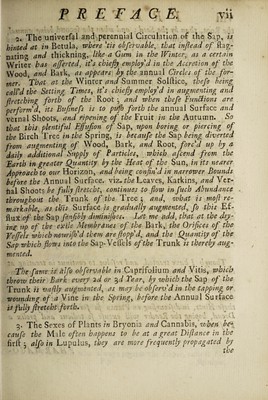 PREFACE. vii
2. The univerſal and perennial Circulation of the Sap, is
hinted at in Betula, where 'tis obſervable, that inſtead of ſtag-
nating and thickning, like a Gum in the Winter, as a certain
Writer has aſſerted, it's chiefly employ'd in the Accretion of the
Wood, and Bark, as appears by the annual Circles of the for-
mer. That at the Winter and Summer Solſtice, theſe being
call'd the Setting Times, it's chiefly employ'd in augmenting and
ſtretching forth of the Root; and when theſe Functions are
perform'd, its Buſineſs is to puſh forth the annual Surface and
vernal Shoots, and ripening of the Fruit in the Autumn. So
that this plentiful Effuſion of Sap, upon boring or piercing of
the Birch Tree in the Spring, is becauſe the Sap being diverted
from augmenting of Wood, Bark, and Root, forc'd up by a
daily additional Supply of Particles, which aſcend from the
Earth in greater Quantity by the Heat of the Sun, in its nearer
Approach to our Horizon, and being confin'd in narrower Bounds
before the Annual Surface. viz. the Leaves, Katkins, and Ver-
nal Shoots be fully ſtretcht, continues to flow in ſuch Abundance
throughout the Trunk of the Tree; and, what is moſt re-
markable, as this Surface is gradually augmented, ſo this Ef-
flux of the Sap ſenſibly diminiſhes. Let me add, that at the dry-
ing up of the exile Membranes of the Bark, the Orifices of the
Veſſels which nouriſh'd them are ſtopp'd, and the Quantity of the
Sap which flows into the Sap-Veſſels of the Trunk is thereby aug-
mented.
The ſame is alſo obſervable in Caprifolium and Vitis, which
throw their Bark every 2d or 3d Year, by which the Sap of the
Trunk is vaſtly augmented, as may be obſerv'd in the tapping or
wounding of a Vine in the Spring, before the Annual Surface
is fully ſtretcht forth.
3. The Sexes of Plants in Bryonia and Cannabis, when be-
cauſe the Male often happens to be at a great Diſtance in the
firſt; alſo in Lupulus, they are more frequently propagated by
the